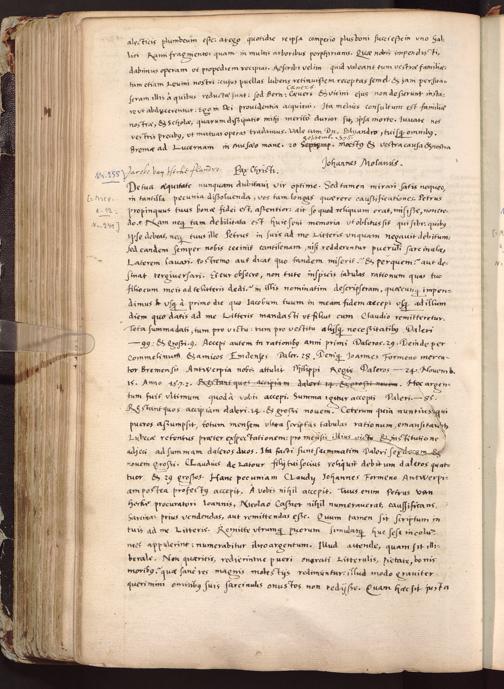 alecticis plumbeum esse. at ego quotidie reipsa comperio plus boni succisesse in uno Ga
lici Rami fragmento quam in multis arboribus porphirianis. Quae nobis impendisti,
dabimus operam ut propediem recipias. Rescribi velim quid valeant tum vestrae familiae
tum etiam Zevini nostri cuius puellas lubens retinuissem receptas semel & iam persua
seram illis a quibus reductae sunt: sed Bern: Cnaere & vicini eius non deserunt insta
re ut abducerentur. Ego in Dei providentia acquievi. Ita melius consultum est familiae
nostrae, & scholae, quarum disiipatio mihi merito durior sit, ipsa morte. Iuvate nos
vestris precibus, ut mutuas operas tradamus. Vale cum Dn. Edvardo, tuisque omnibus.
Septemb. 1575
Bremae ad Lucernam in musaeo mane. 20 moestus & vestra causa &nostra
Johannes Molanus.
Nr. 255 Jarchi van Herke flandro. Pax Christi.
De tua aequitate nunquam dubitavi vir optime. Sed tamen mirari satis nequeo,
in tantilla pecunia dissolvenda, vos tam longas quaerere caussationes. Petrus
propinquus tuus bonae fidei est, assentior: ait se quod reliquum erat, misisse, non cre
do. & Nam neque tam debilitata est huic seni memoria ut oblitus sit qui sibi, quibus
ipse debeat, neque tuus ille Petrus in suis ad me Literis unquam negavit debitum
sed eandem semper nobis cecinit cantilenam, nisi redderentur puerulis sarcinulae,
Laterem lavari. Postremo aut dicat quo tandem miserit & per quem: aut de
sinat tergiversari. Igitur obsecro, non tute inspicis tabulas rationum quas tuo
filiorum meis ad te literis dedi? in illis nominatim descripseram, quaecunque impen
dimus usque a primo die quo Iacobum tuum in meam fidem accepi usque ad illum
diem quo datis ad me Litteris mandasti ut filius cum Claudio remitteretur.
Tota summa dati, tum pro victu tum pro vestitu aliisque necessitatibus Daleri
—99. & grossi. 9. Accepi autem in rationibus anni primi Daleros. 29. Deinde per
Commelinum & amicos Emdenses Daler. 28. Denique Joannes Formeno merca
tor Bremensis Antverpia nobis attulit Philippi Regis Daleros — 24. Novemb.
15. Anno 1572. Restant quos accipiam daleri 14. & grossi novem. Hoc argen
tum fuit ultimum quod a vobis accepi. Summa igitur accepti Daleri —85.
Restant quos accipiam daleri. 14. & grossi novem. Ceterum quia nuntius, qui
pueros assumpsit, totum mensem ultra scriptas tabulas rationum,
Lubecae retentus praeter expectationem: pro mensis illius victu & institutione
adjeci ad summam daleros duos. Ita facti sunt summatim Daleri sexdecim &
novem grossi. Claudius de Latour filii tui socius reliquit debitum daleros quatu
tuor & 29 grossos. Hanc pecuniam Claudii Johannes Formeno Antverpi
am postea profectus accepit. A vobis nihil accepit. Tuus enim Petrus van
herke procuratori Joannis, Nicolao Casner nihil numeraverat, caussificans,
sarcinas prius vendendas, aut remittendas esse. Quum tamen sit scriptum in
tuis ad me Litteris. Remitte utrumque puerum simulatque hue sesa incolu
mes appulerint: numerabitur ibro argentum. Illud attende, quam sit illi
berale. Non quaeritis, redierintne pueri onerati Litterulis, pietate, bonis
moribus: quae sane res magnis molestiis redimuntur: illud modo graviter
querimini omnibus suis sarcinulis onustos non rediisse. Quam haec sit justa